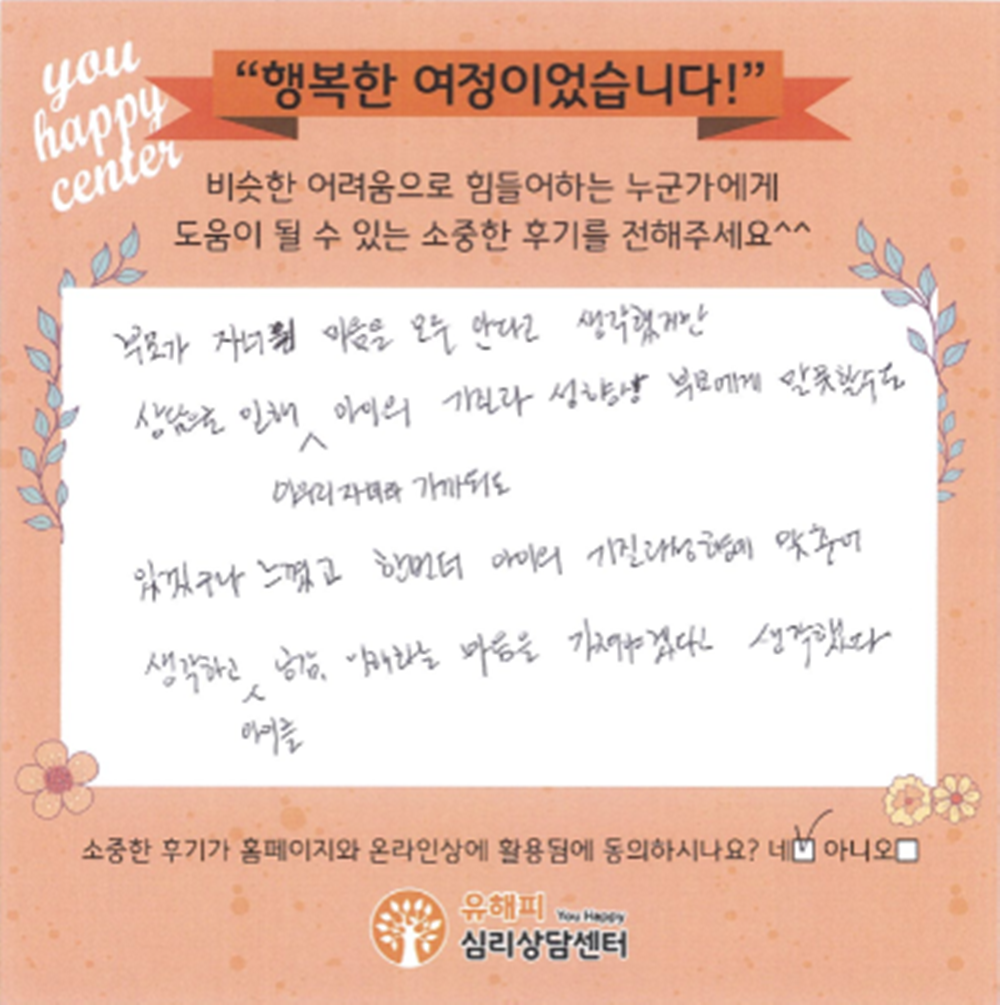 you
happy
center
“행복한 여정이었습니다!”
비슷한 어려움으로 힘들어하는 누군가에게
도움이 될 수 있는 소중한 후기를 전해주세요^^
부모가 자녀의 마음을 모두 안다고 생각했지만
상담으로 인해 아이의 기질과 성향상 부모에게 말못할수도
아무리 자녀와 가까워도
있겠구나 느꼈고 한번더 아이의 기질과성향에 맞추어
생각하고 공감, 이해하는 마음을 가져야겠다고 생각했다
아이를
소중한 후기가 홈페이지와 온라인상에 활용됨에 동의하시나요? 네☑ 아니오☐
유해피 You Happy
심리상담센터